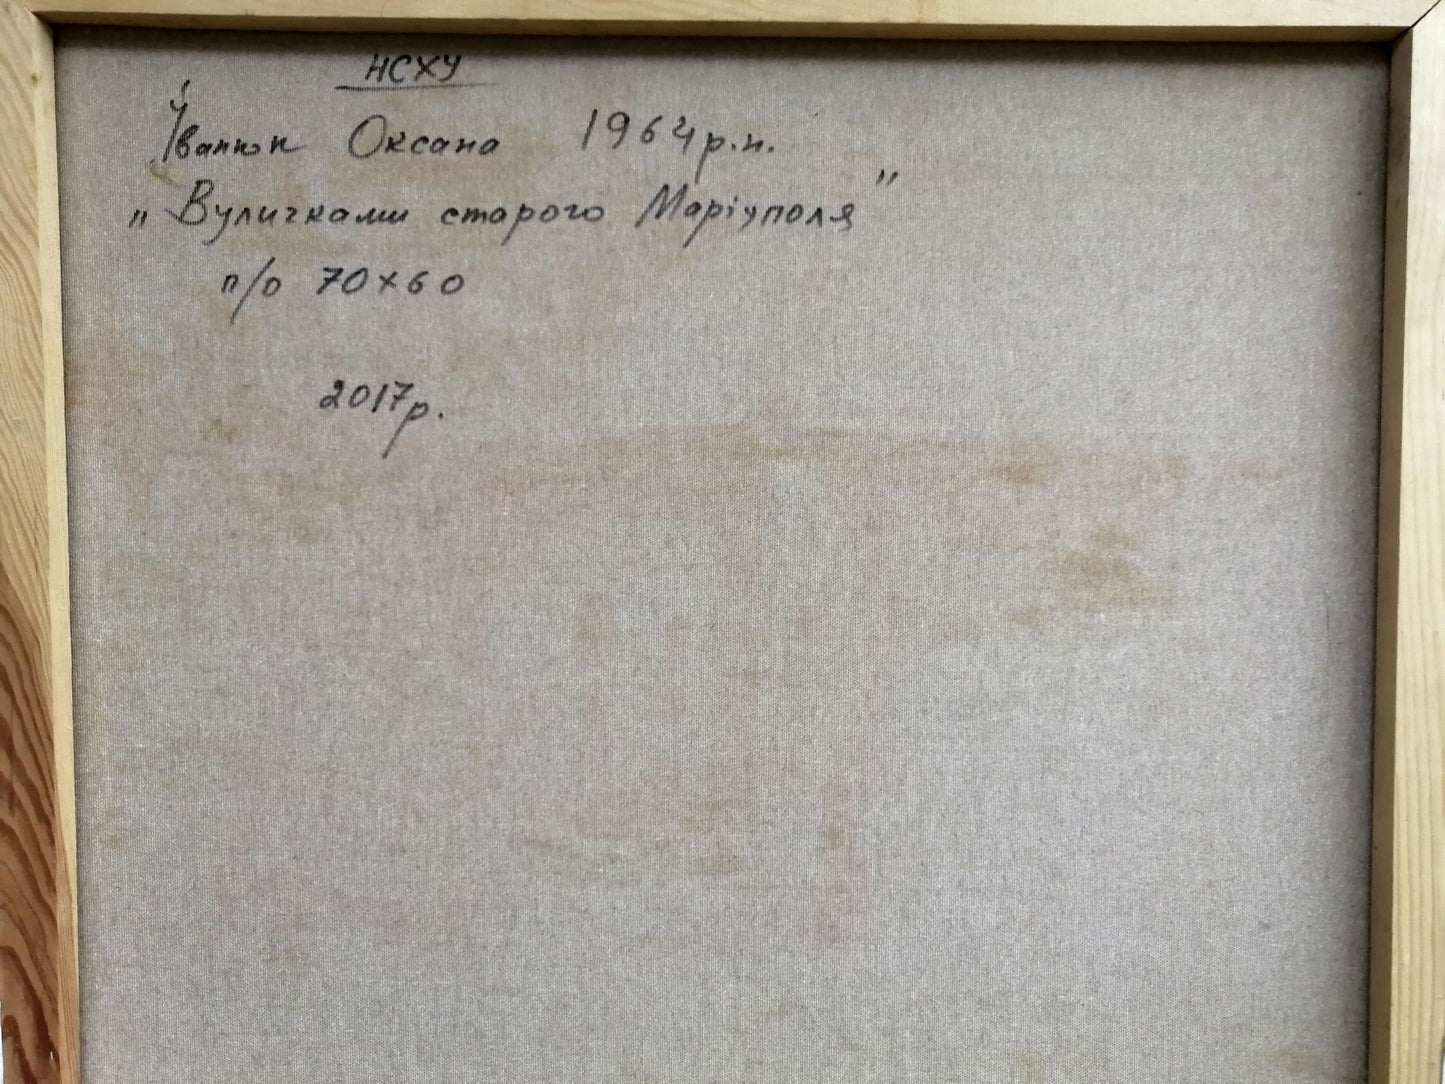 НСХУ
Іванюк Оксана 1964 р.н.
„Вуличками старого Маріуполя"
п/о 70х60
2017р.